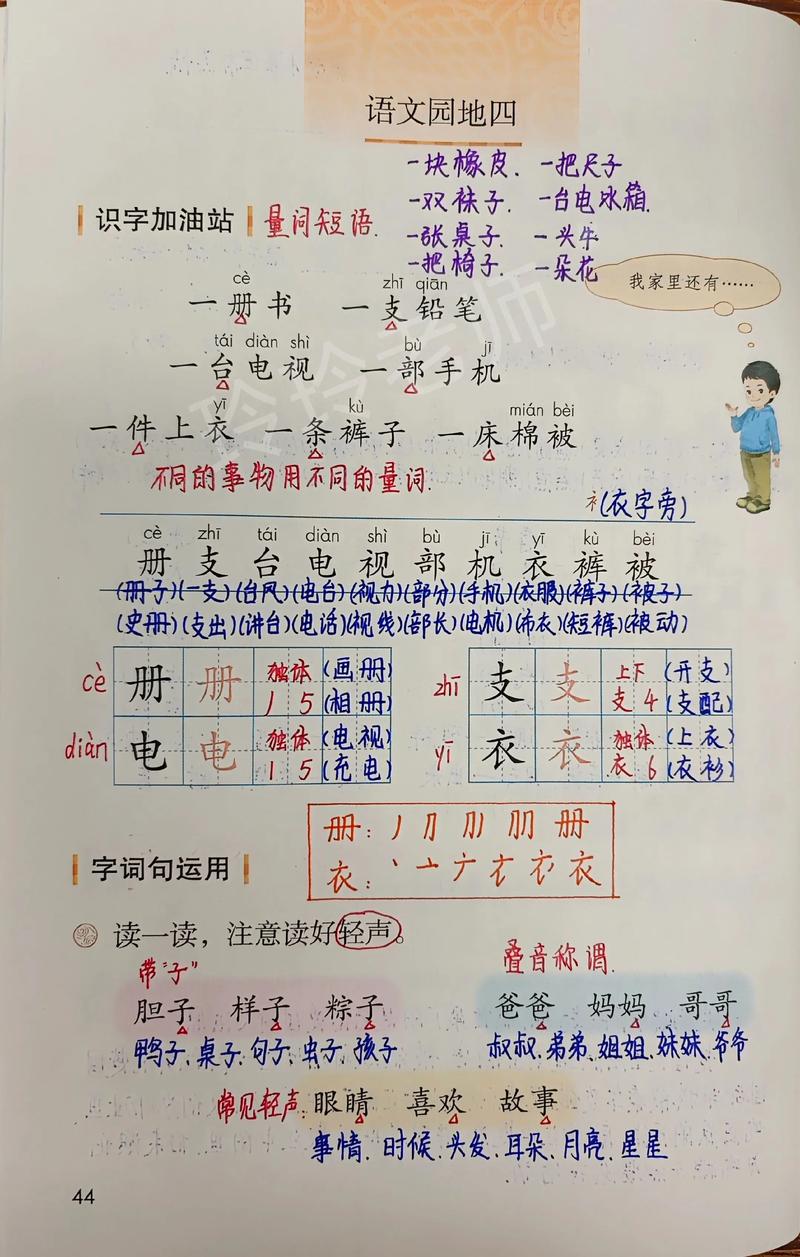 语文园地四
一块橡皮、一把尺子
一双袜子、一台电冰箱、
识字加油站 量词短语、
一张桌子、一头牛
一把椅子、一朵花
我家里还有……
cè zhī qiān
一册书 一支铅笔
tái diàn shì bù jī
一台电视 一部手机
yī kù mián bèi
一件上衣 一条裤子 一床棉被
不同的事物用不同的量词.
衤(衣字旁)
cè zhī tái diàn shì bù jī yī kù bèi
册 支 台 电 视 部 机 衣 裤 被
(册子)(一支)(台风)(电台)(视力)(部分)(手机)(衣服)(裤子)(被子)
(史册)(支出)(讲台)(电话)(视线)(部长)(电机)(布衣)(短裤)(被动)
cè 册 册 独体 (画册) zhī 支 支 上下 (开支)
丿 5 (相册) 支 4 (支配)
diàn 电 电 独体 (电视) yī 衣 衣 独体 (上衣)
丨 5 (充电) 衣 6 (衣衫)
册: 丿 册
字词句运用
衣: 丶 亠 衣
读一读，注意读好轻声。
带"子" 叠音称谓.
胆子 样子 粽子 爸爸 妈妈 哥哥
鸭子、桌子、句子、虫子、孩子 叔叔、弟弟、姐姐、妹妹、爷爷
常见轻声: 眼睛 喜欢 故事
事情、时候、头发、耳朵、月亮、星星
44
玲玲老师